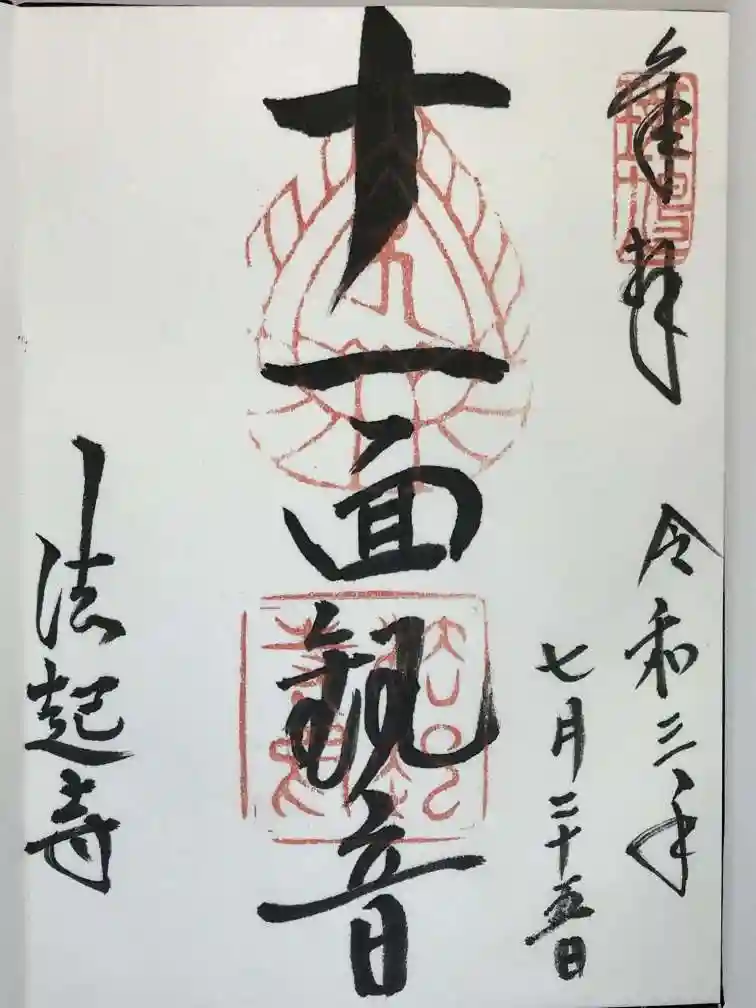 奉拝
令和三年
七月二十五日
十一面観音
法起寺